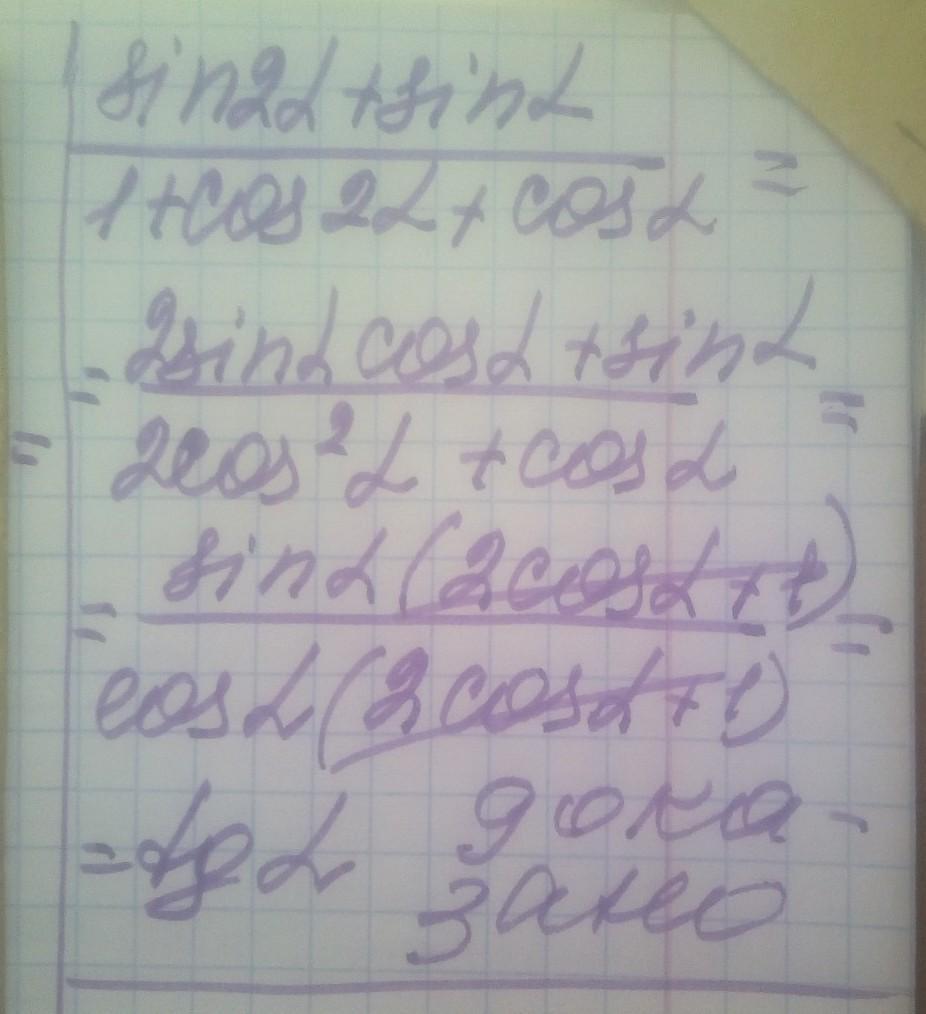 sin2α + sinα
1 + cos2α + cosα =
= 2sinα cosα + sinα =
= 2cos²α + cosα
= sinα(2cosα + 1) =
cosα(2cosα + 1)
= tgα дока-
зано